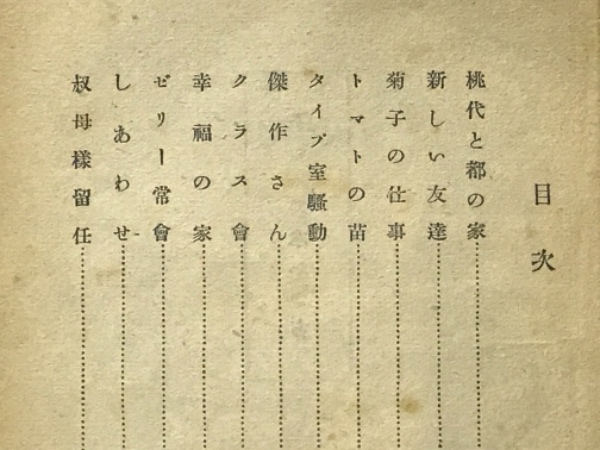 目次
桃代と都の家
新しい友達
菊子の仕事
トマトの苗
タイプ室騷動
傑作さん
クラス會
幸福の家
ゼリー常會
しあわせ
叔母樣留任